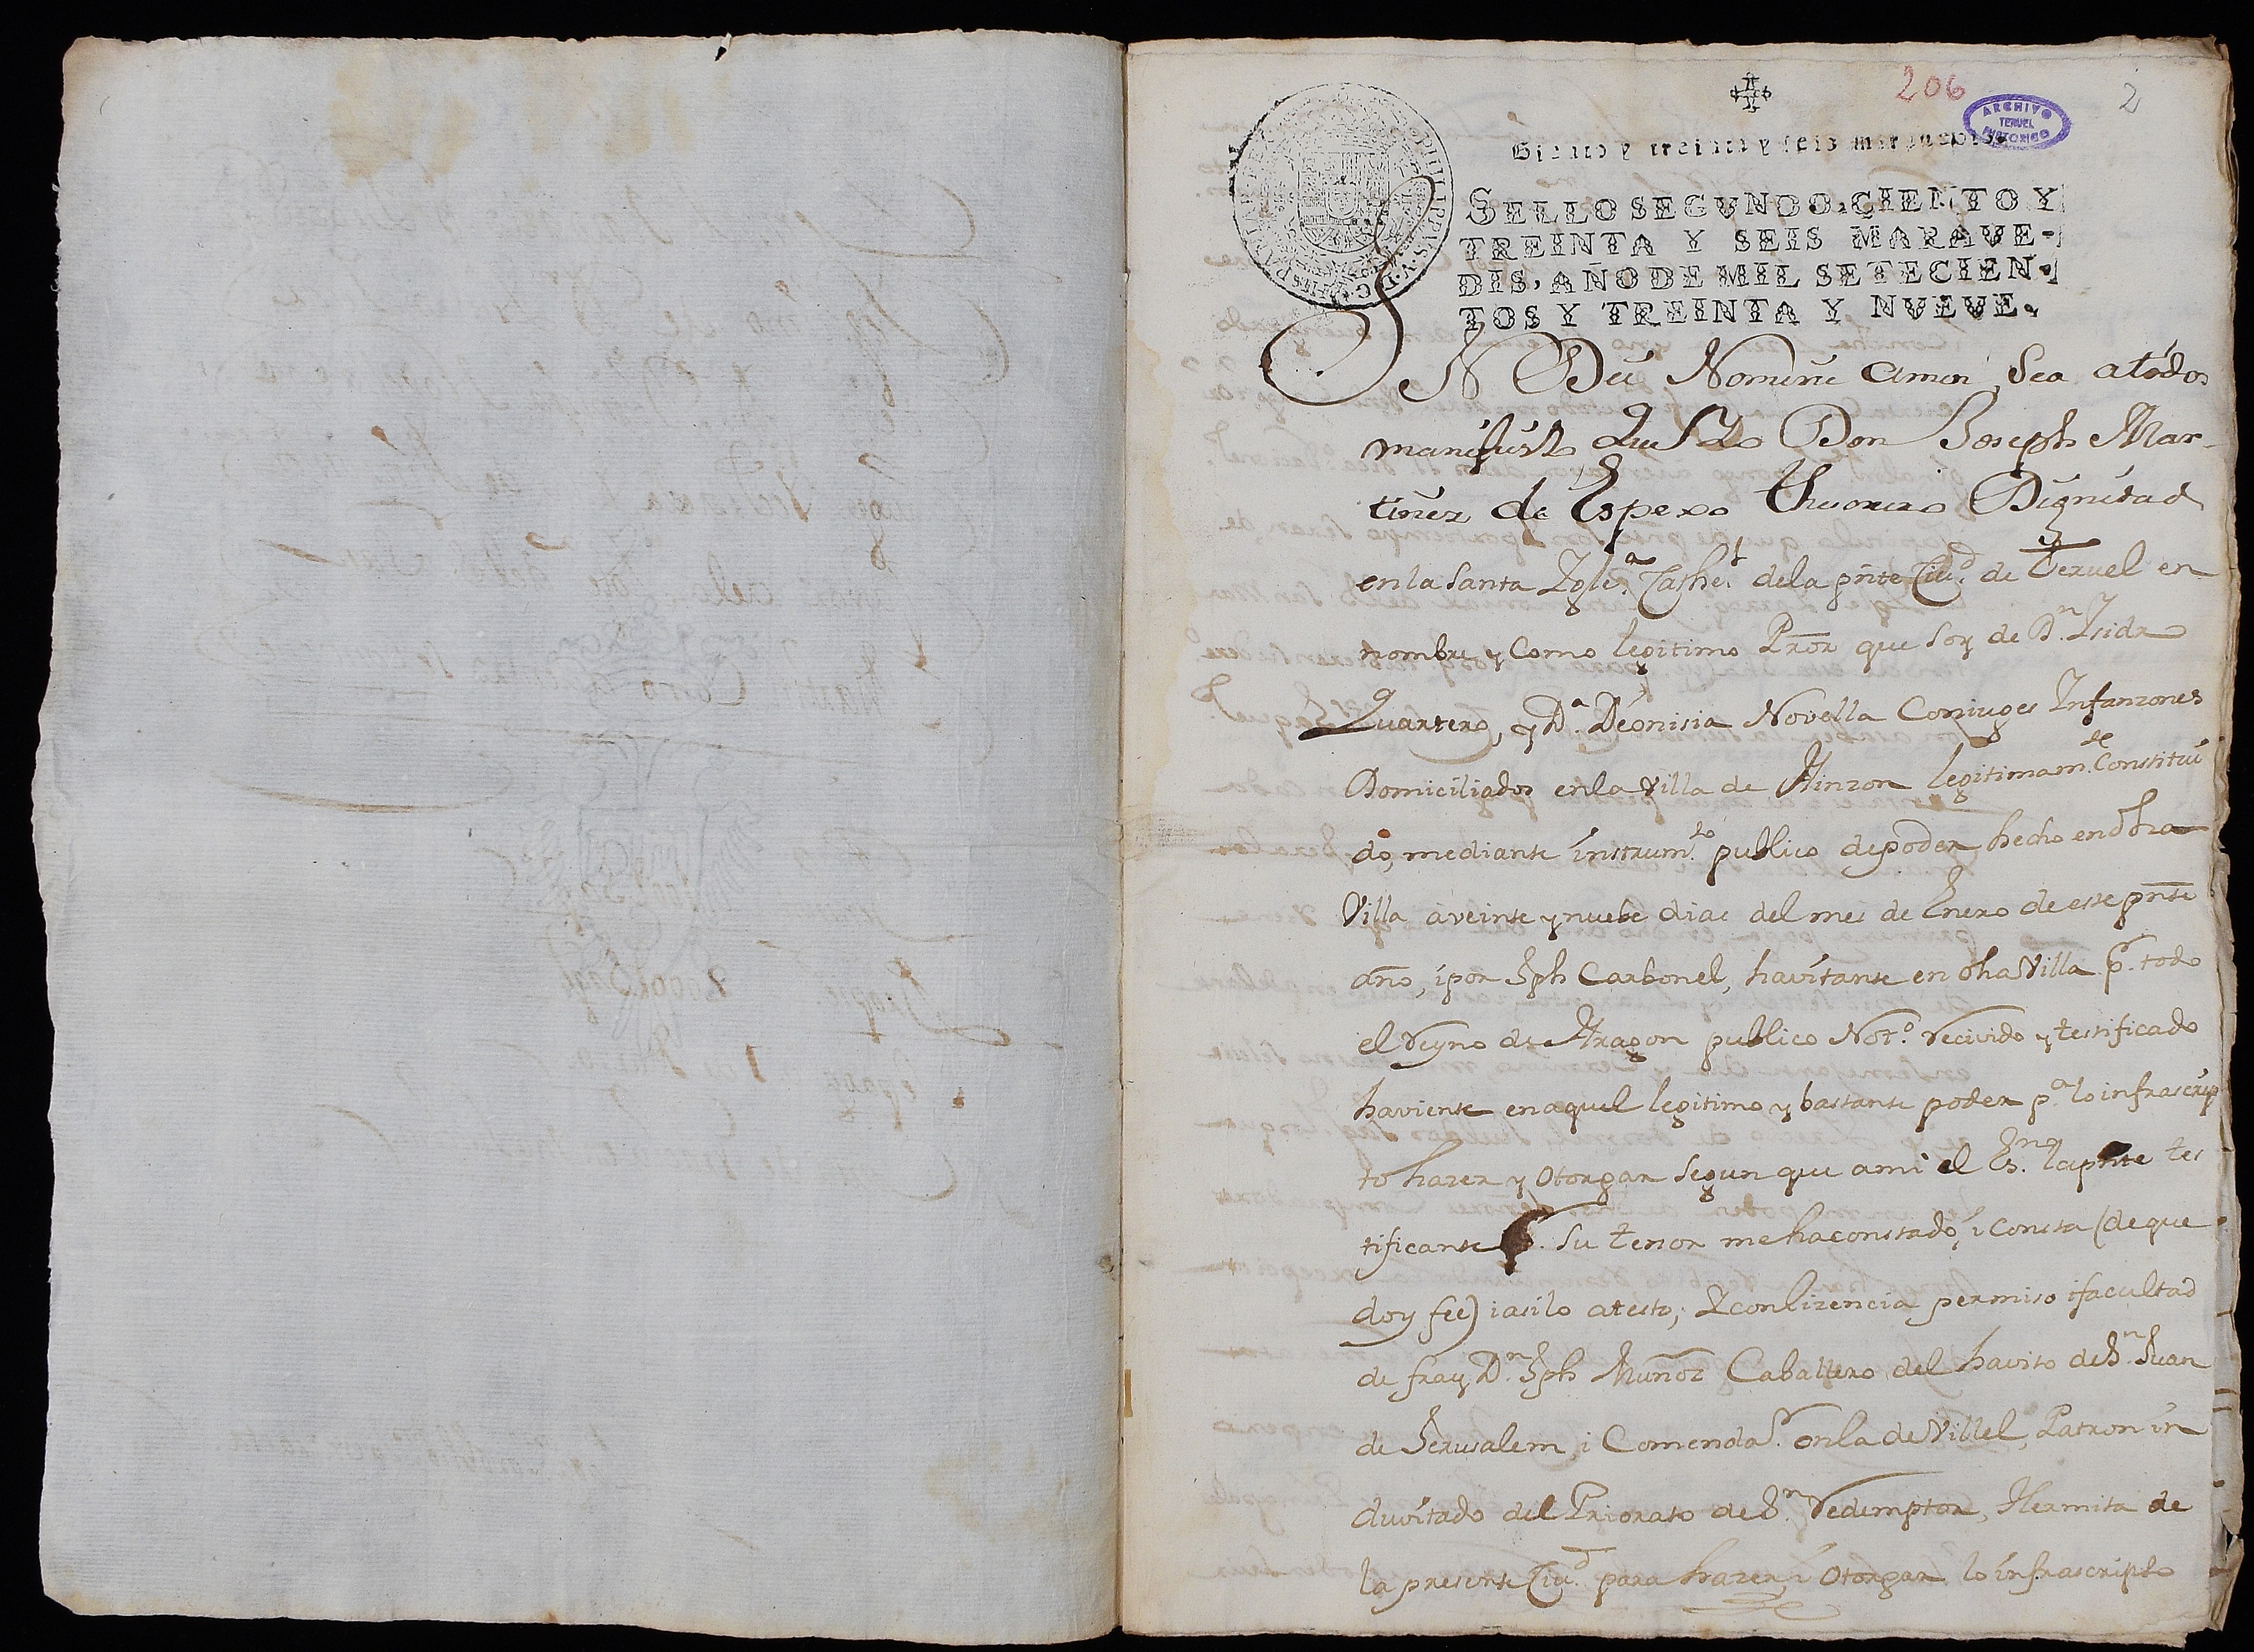 206
2
ARCHIVO
TERUEL
HISTORICO
PHILIPPUS V D G
Ciento y treinta y seis maravedis
SELLO SEGVNDO, CIENTO Y
TREINTA Y SEIS MARAVE-
DIS, AÑO DE MIL SETECIEN-
TOS Y TREINTA Y NVEVE.
IN Dei Nomine Amen Sea a todos
manifiesto Que Yo Don Joseph Mar-
tinez de Espexo Thesorero Dignidad
en la Santa Igle.ª Cathe.l de la pñte Ciu.d de Teruel en
nombre y Como legitimo Pror que soy de D.n Isidro
Quartero, y D.ª Deonisia Novella Coniuges Infanzones
Domiciliados en la Villa de Rinzon legitimam.te Constitui
do, mediante instrum.to publico de poder hecho en dha
Villa a veinte y nuebe dias del mes de Enero de este pñte
año, i por Jph Carbonel, havitante en dha Villa p.r todo
el Reyno de Aragon publico Not.o recivido y testificado
haviente en aquel legitimo y bastante poder p.a lo infrascrip
to hazer y Otorgar segun que a mi el Es.no la pñte tes
tificante . Su tenor me ha constado, i consta (de que
doy fee) i asi lo atesto; Y con lizencia permiso i facultad
de fray D.n Jph Muñoz Caballero del havito de S.n Juan
de Jerusalem, i Comenda.r en la de Villel, Patron in
duvitado del Priorato de S.n Redemptor, Hermita de
la presente Ciu.d para hazer, i Otorgar lo infrascripto